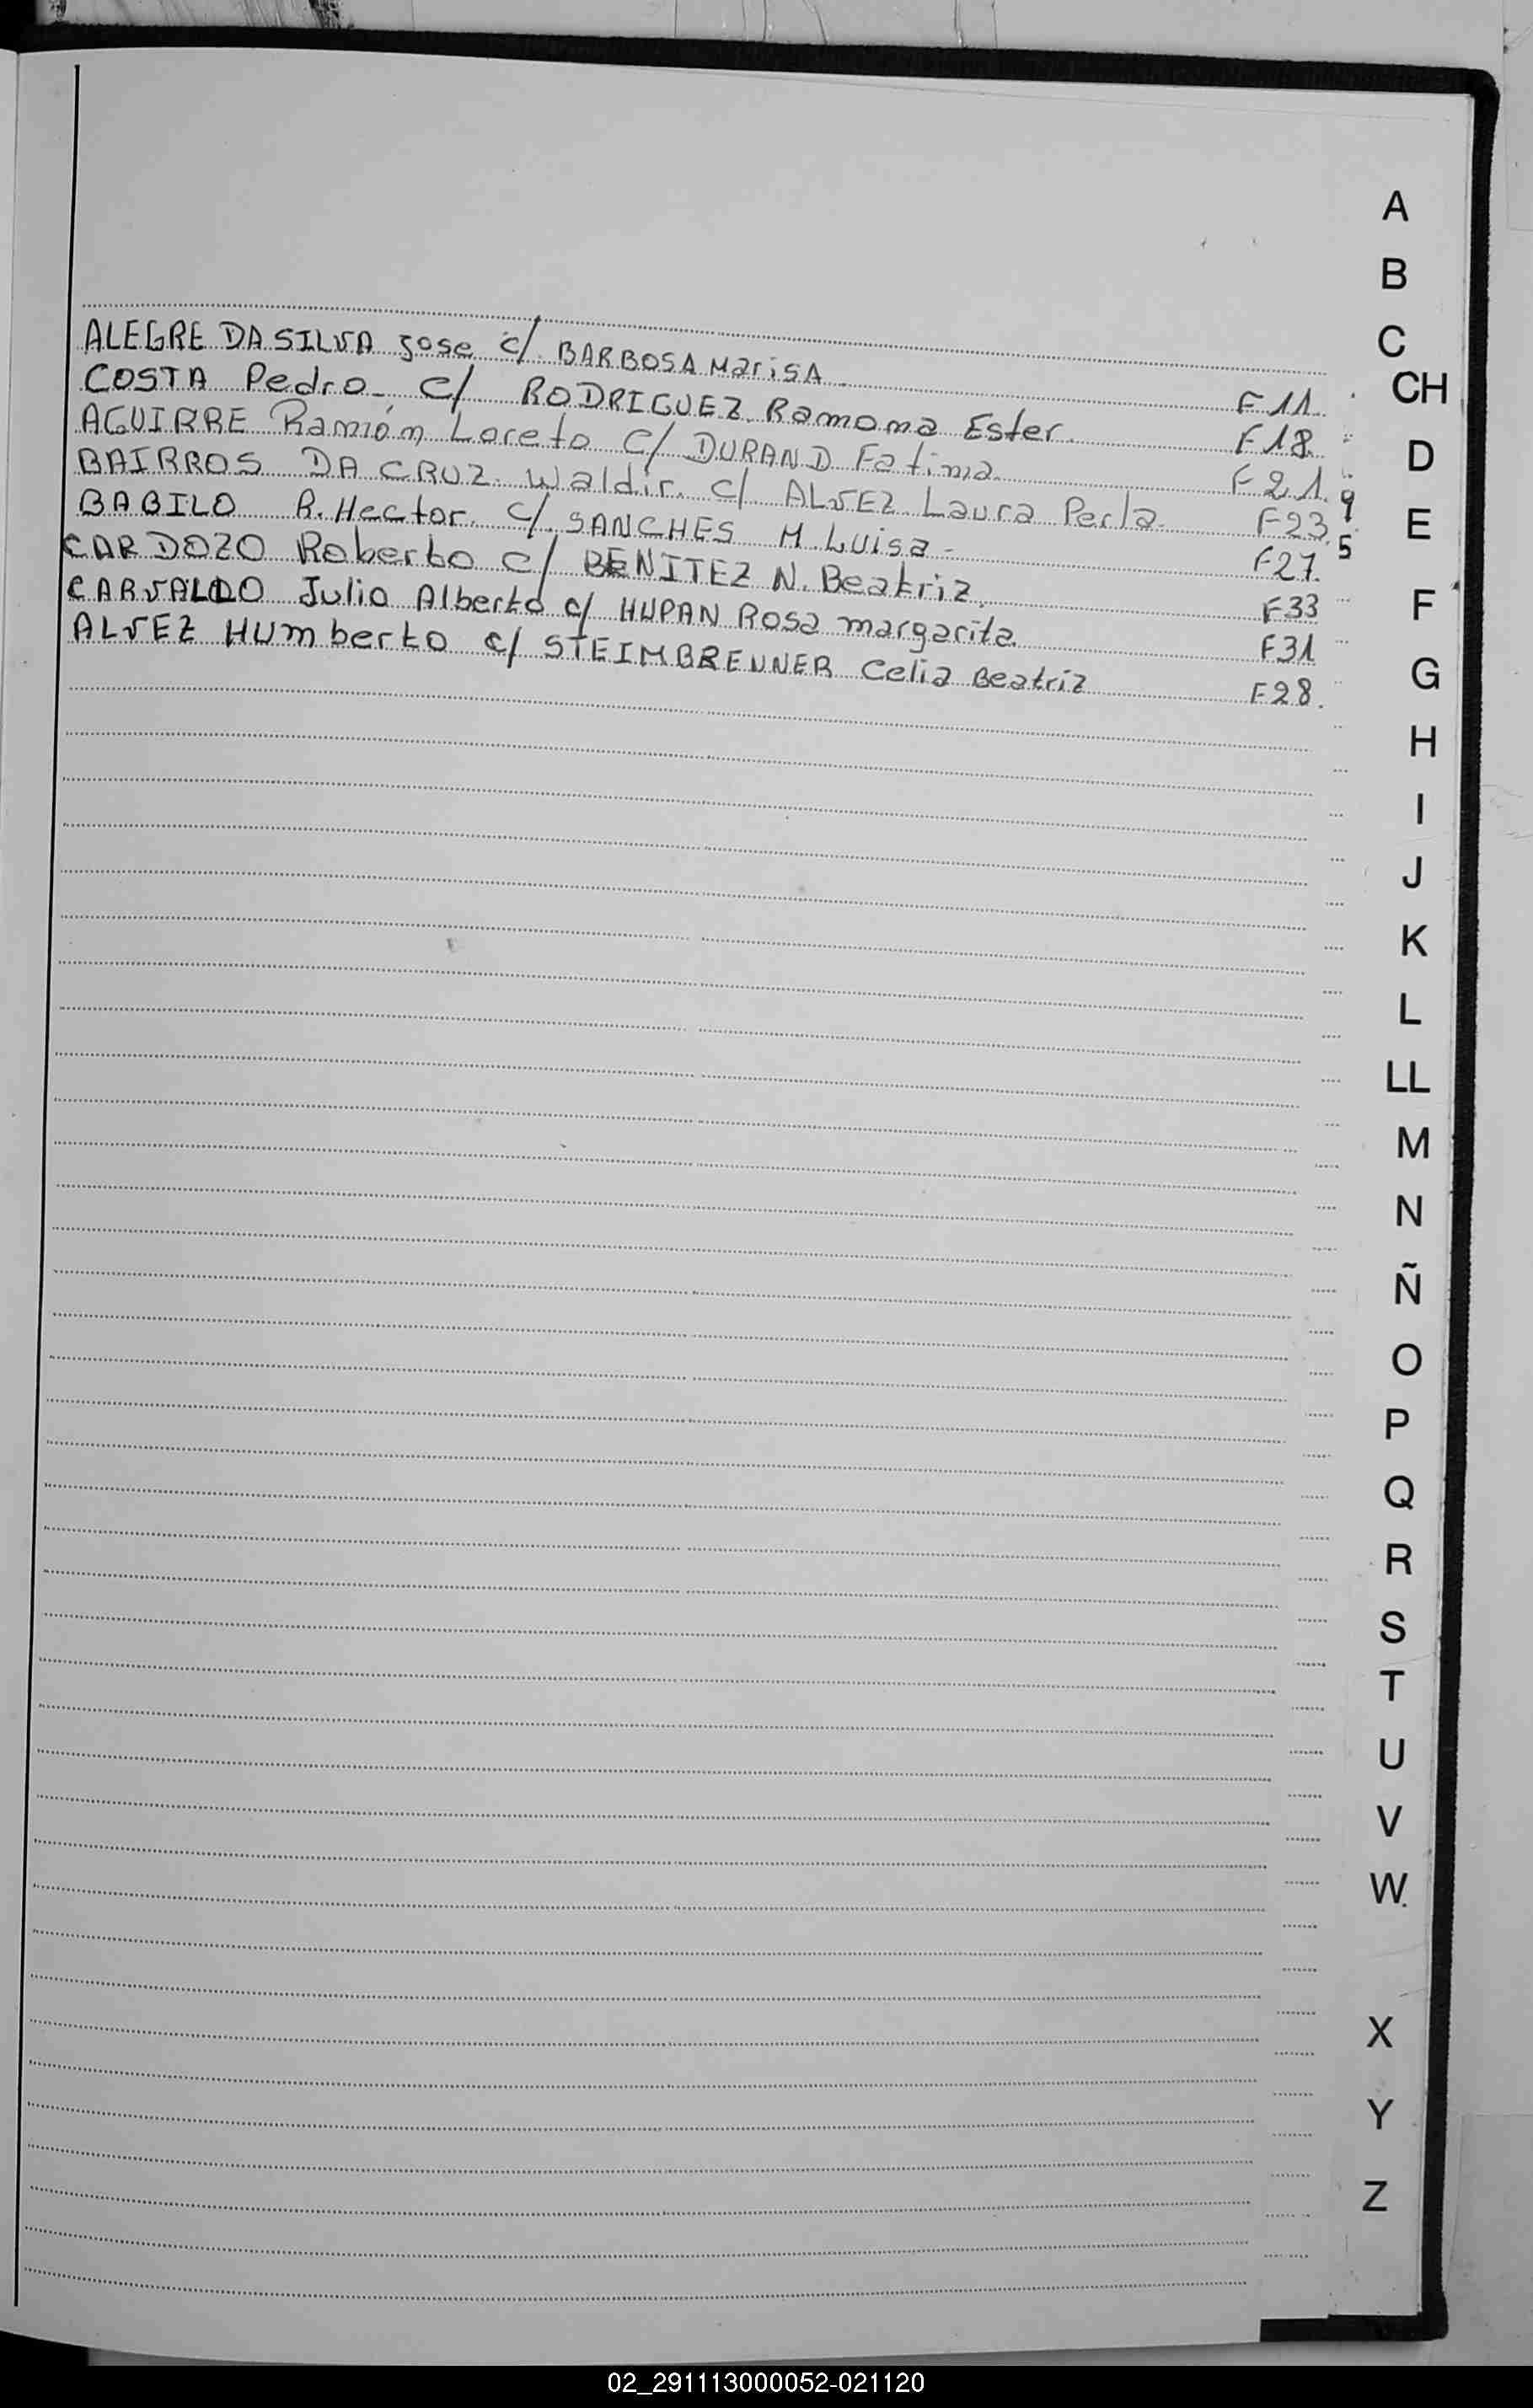 ALEGRE DA SILVA Jose c/ BARBOSA MarisA F 11.
COSTA Pedro c/ RODRIGUEZ Ramona Ester. F 18.
AGUIRRE Ramón Loreto c/ DURAND Fatima. F 21.
BAIRROS DA CRUZ Waldir. c/ ALVEZ Laura Perla F 23.
BABILO R. Hector. c/ SANCHES M. Luisa - F 27.
CARDOZO Roberto c/ BENITEZ N. Beatriz. F 33
CARVALDO Julio Alberto c/ HUPAN Rosa margarita. F 31
ALVEZ HUmberto c/ STEIMBRENNER Celia Beatriz F 28.
9
5
A
B
C
CH
D
E
F
G
H
I
J
K
L
LL
M
N
Ñ
O
P
Q
R
S
T
U
V
W.
X
Y
Z
02_291113000052-021120